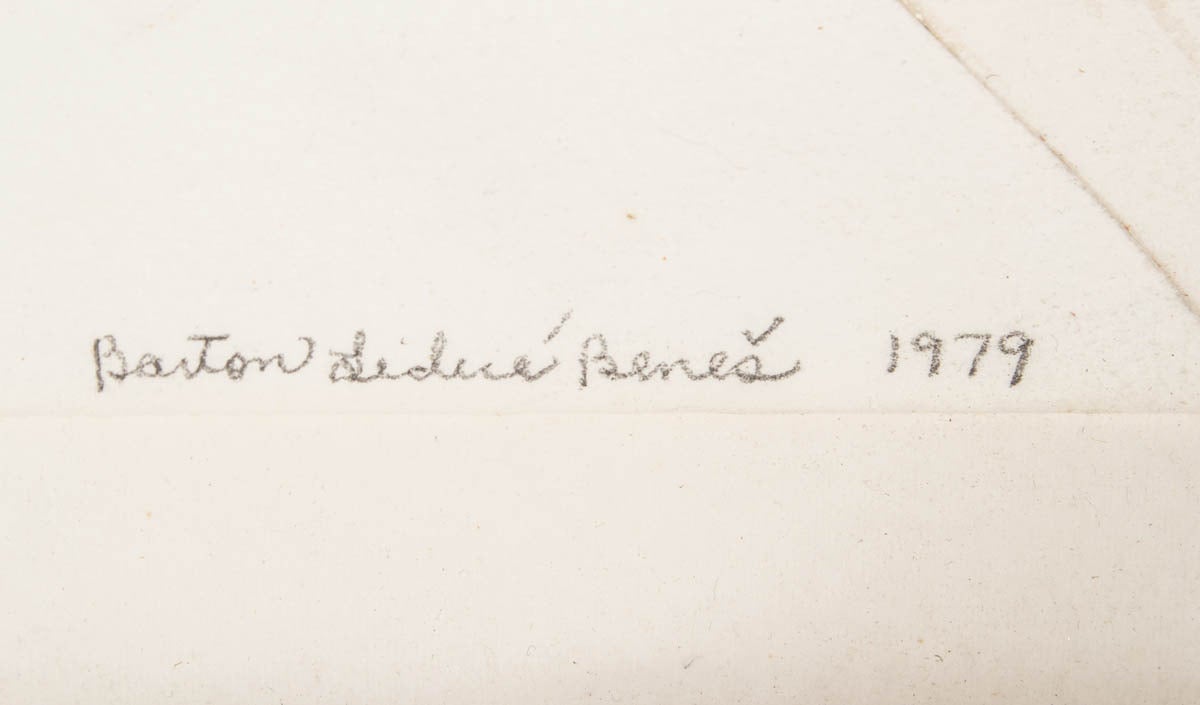 Barton Lidicé Beneš 1979